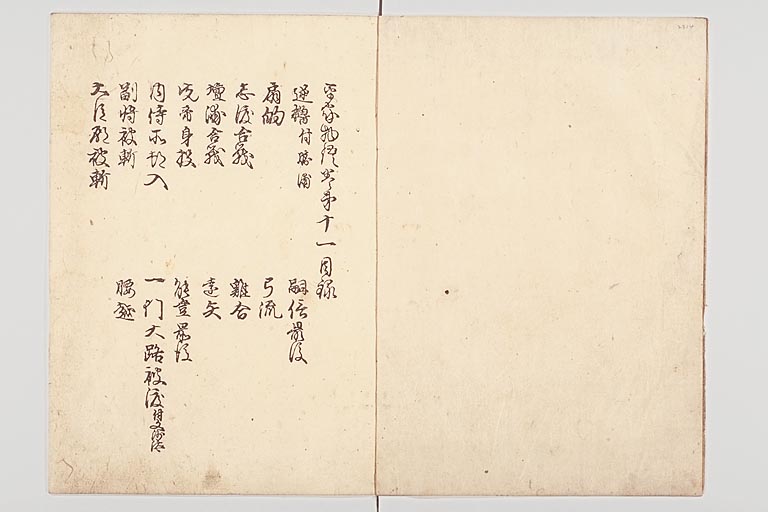 平家物語巻第十一目録
逆櫓付勝浦　嗣信最後
扇的　弓流
志度合戦　雞合
壇浦合戦　遠矢
先帝身投　能登最後
内侍所都入　一門大路被渡付文沙汰
副将被斬　腰越
大臣殿被斬